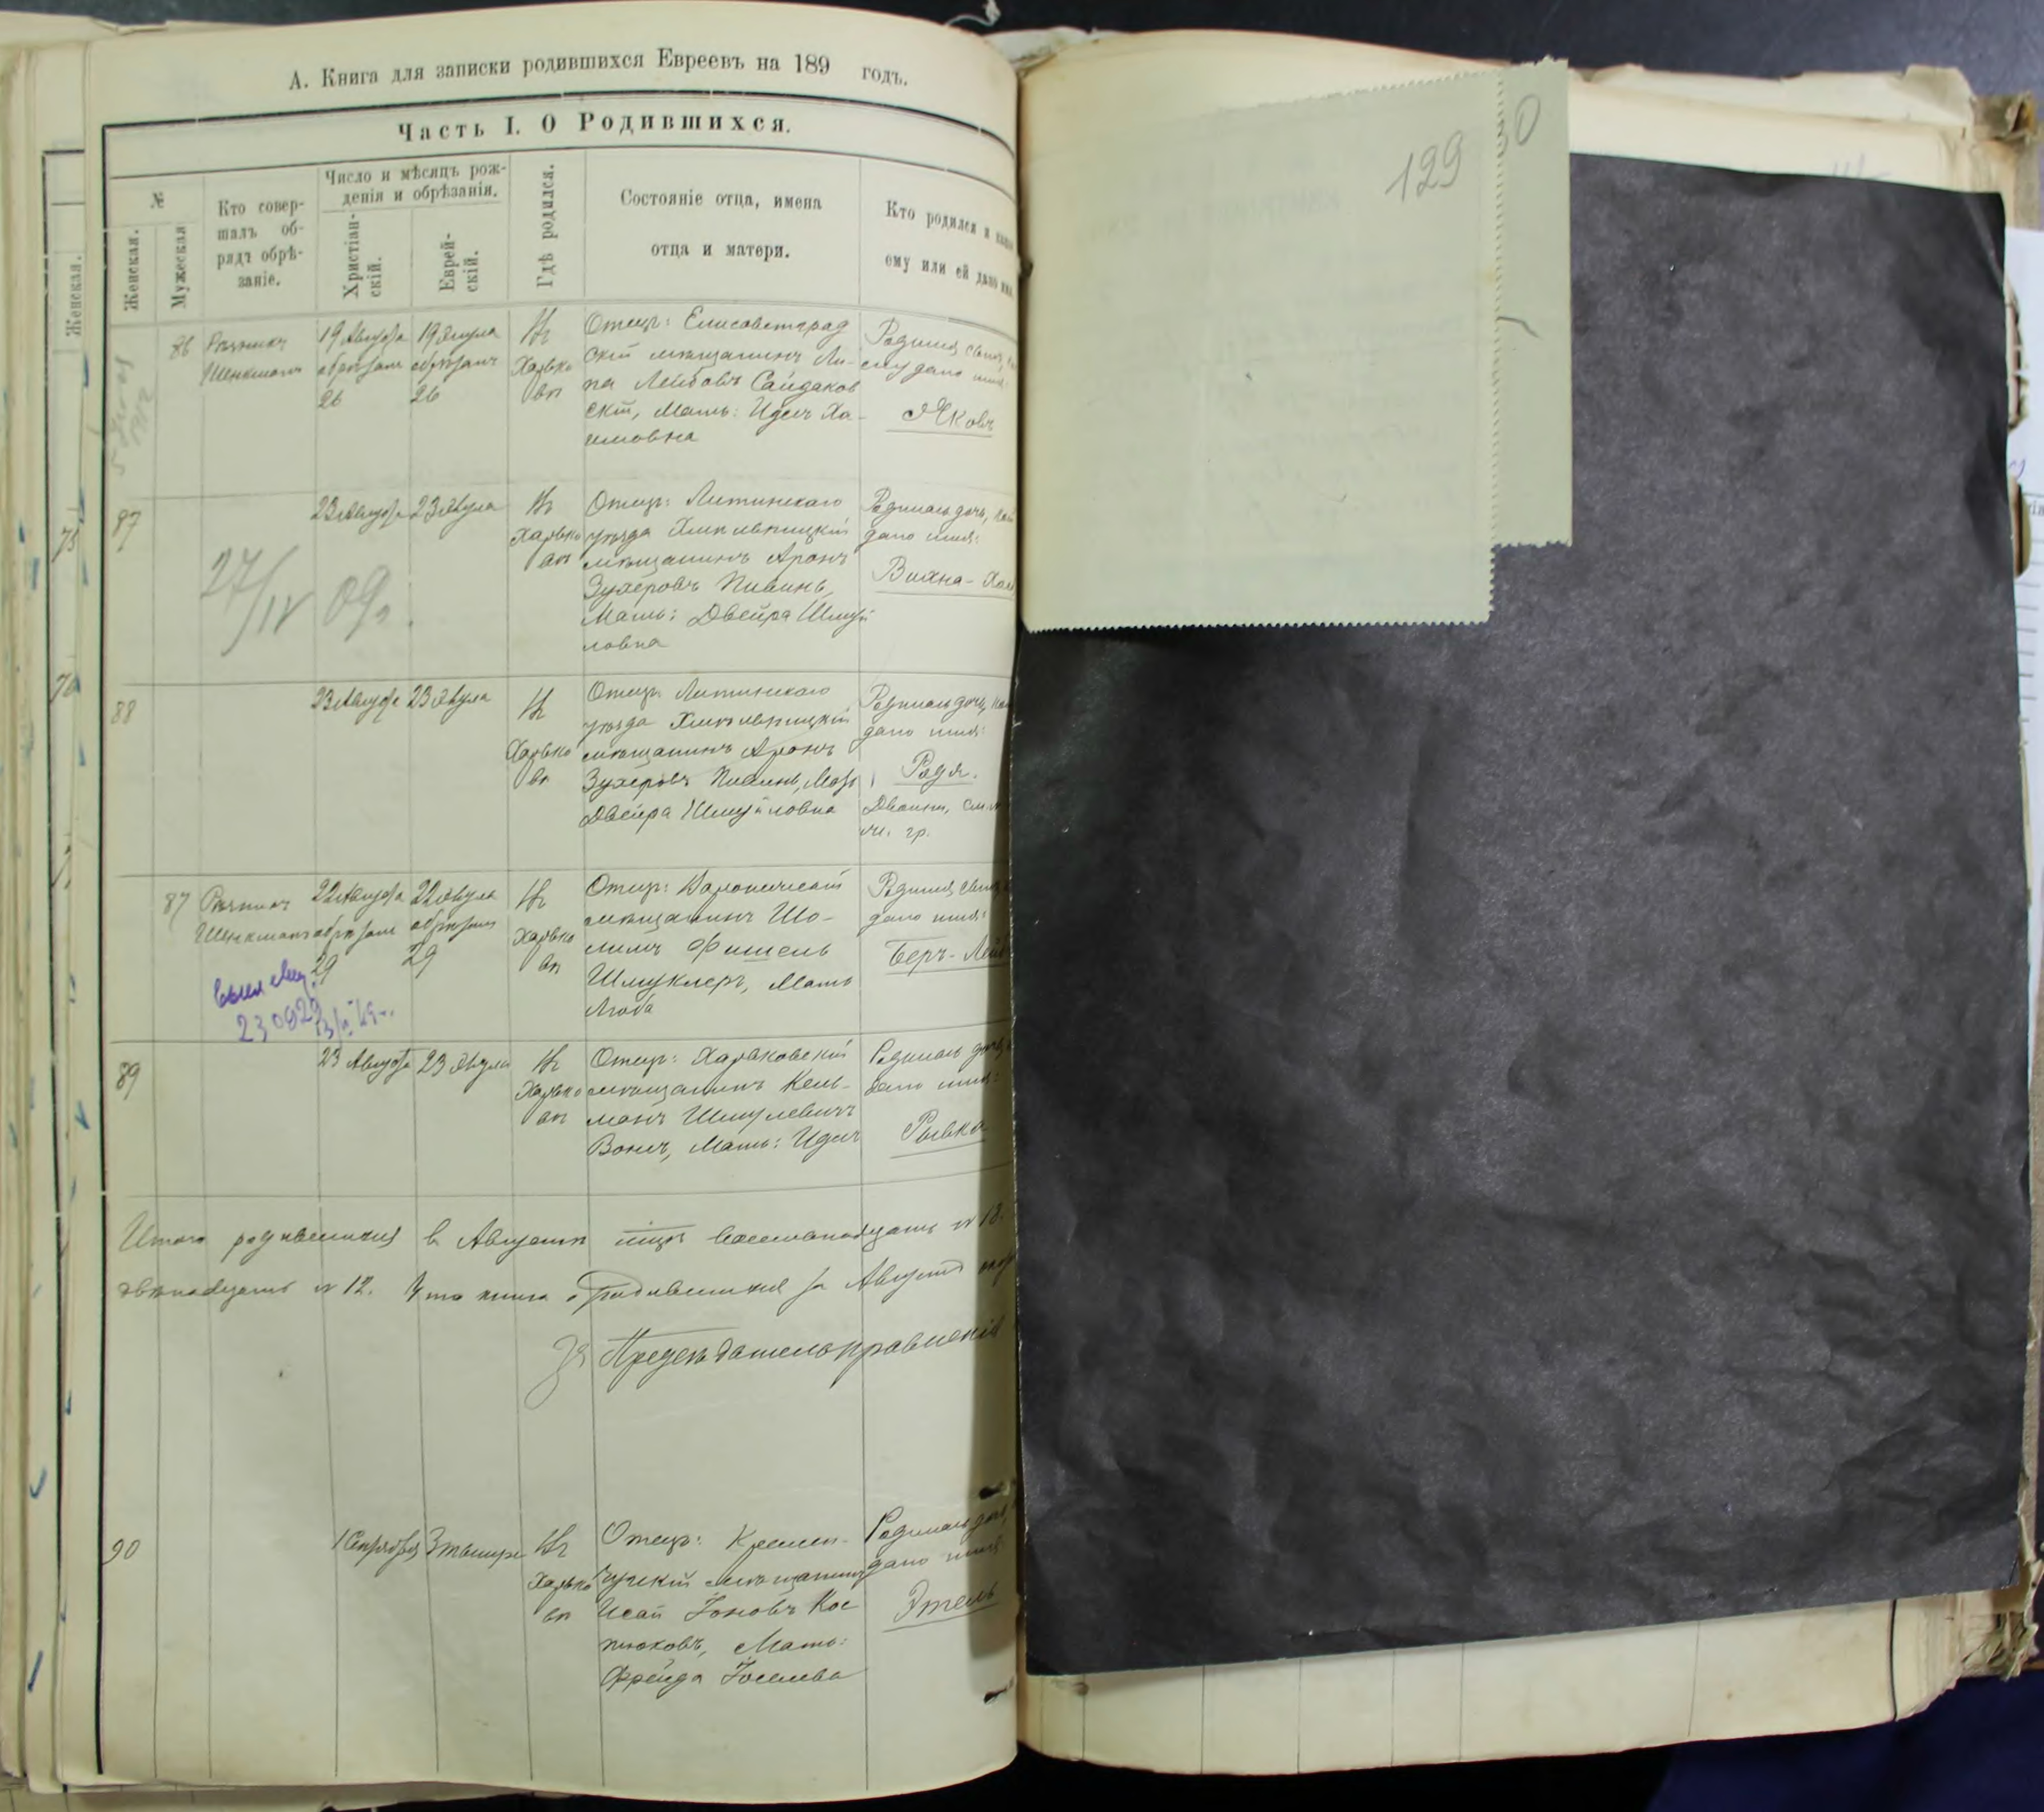 А. Книга для записки родившихся Евреевъ на 189 годъ.
Часть I. О Родившихся.
№
Женская.
Мужеская
Кто совер-
шалъ об-
рядъ обрѣ-
заніе.
Число и мѣсяцъ рож-
денія и обрѣзанія.
Христіан-
скій.
Еврей-
скій.
Гдѣ родился.
Состояніе отца, имена
отца и матери.
Кто родился и
ему или ей дано
Женская.
86
Резникъ
Шенкманъ
19 Августа
обрѣзанъ
26
19 Элула
обрѣзанъ
26
Въ
Харько
вѣ
Отецъ: Елисаветград
скій мѣщанинъ Ли-
па Лейбовъ Сайдаков
скій, Мать: Идесъ Ха-
имовна
Родился сынъ,
ему дано имя:
Яковъ
75
87
23 Августа
23 Элула
Въ
Харько
вѣ
Отецъ: Литинскаго
уѣзда Хмельницкій
мѣщанинъ Аронъ
Зухеровъ Пивинь,
Мать: Двейра Шмуй
ловна
Родилась дочь,
дано имя:
Вихна-
27/IV 09г.
76
88
23 Августа
23 Элула
Въ
Харько
вѣ
Отецъ Литинскаго
уѣзда Хмельницкій
мѣщанинъ Аронъ
Зухеровъ Пивинь, Мать
Двейра Шмуйловна
Родилась дочь,
дано имя:
Родя.
Двойни, см.
87
Резникъ
Шенкманъ
22 Августа
обрѣзанъ
29
22 Элула
обрѣзанъ
29
Въ
Харько
вѣ
Отецъ:
мѣщанинъ Шо-
лимъ Фишель
Шмуклеръ, Мать
Люба
Родился сынъ,
дано имя:
Беръ-
230929
89
23 Августа
23 Элула
Въ
Харько
вѣ
Отецъ: Харьковскій
мѣщанинъ Кель-
манъ Шмулевичъ
Мать: Идесъ
Родилась дочь,
дано имя:
Рывка
Итого родившихся въ Августѣ мцѣ восемнадцать № 18.
двѣнадцать № 12. Что книга о родившихся за Августъ
За Предсѣдатель правленія
90
1 Сентября
3 тышри
Въ
Харько
вѣ
Отецъ: Кремен-
чугскій мѣщанинъ
Исай Іоновъ Кос
тюковъ, Мать:
Фрейда
Родилась дочь,
дано имя:
Этель
129
0